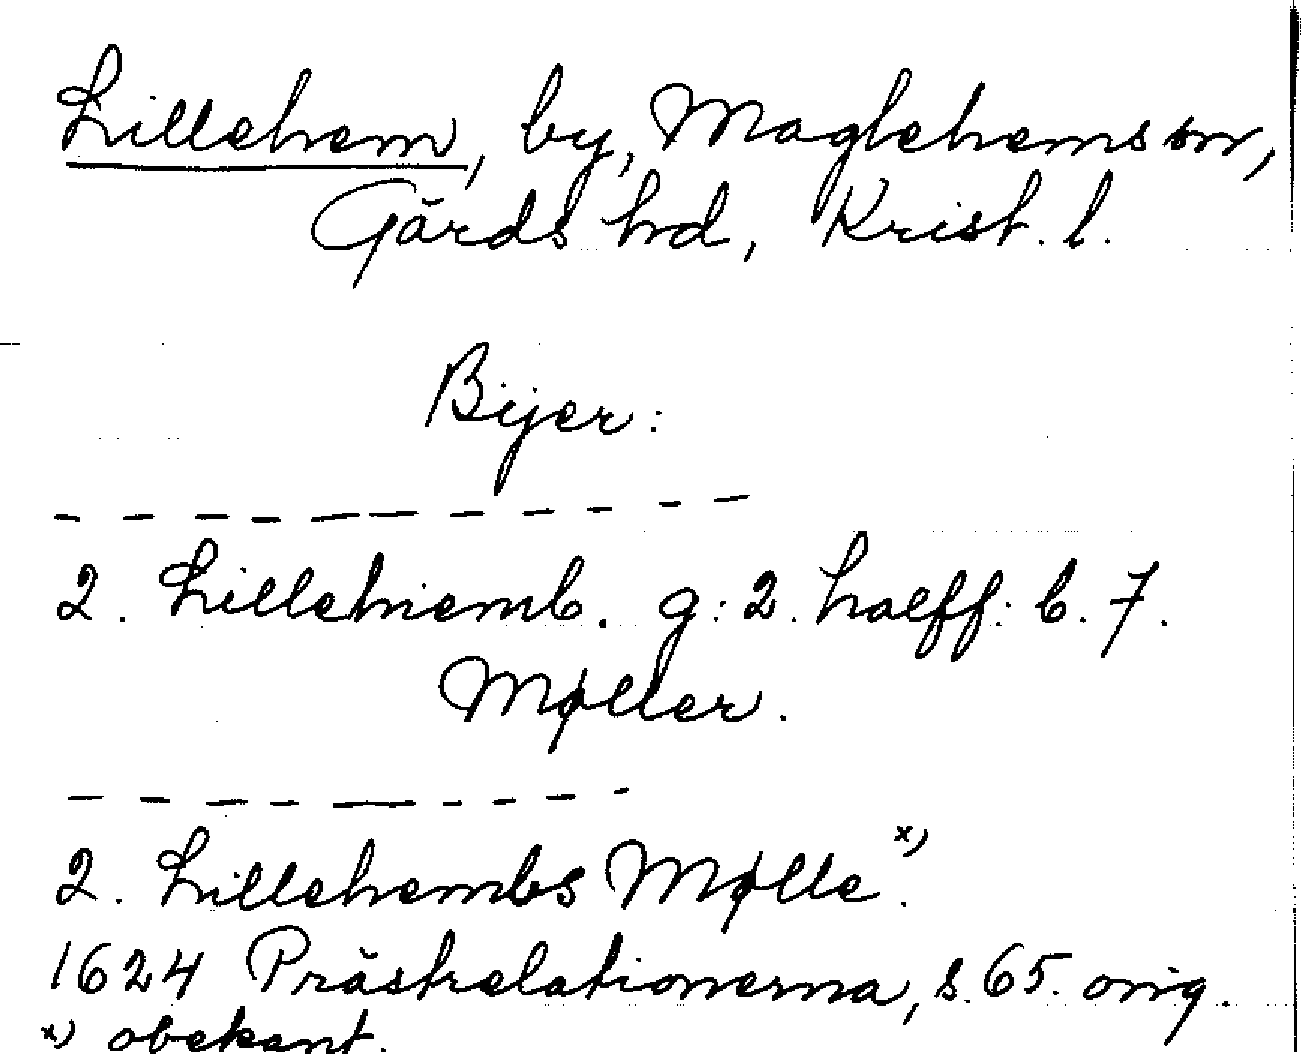 Lillehem, by, Maglehems sn,
Gärds hd, Krist. l.
Bijer:
2. Lillehiemb. g: 2. halff: b. 7.
Møller.
2. Lillehembs Mølle x).
1624 Prästrelationerna, s. 65. orig.
x) obekant.